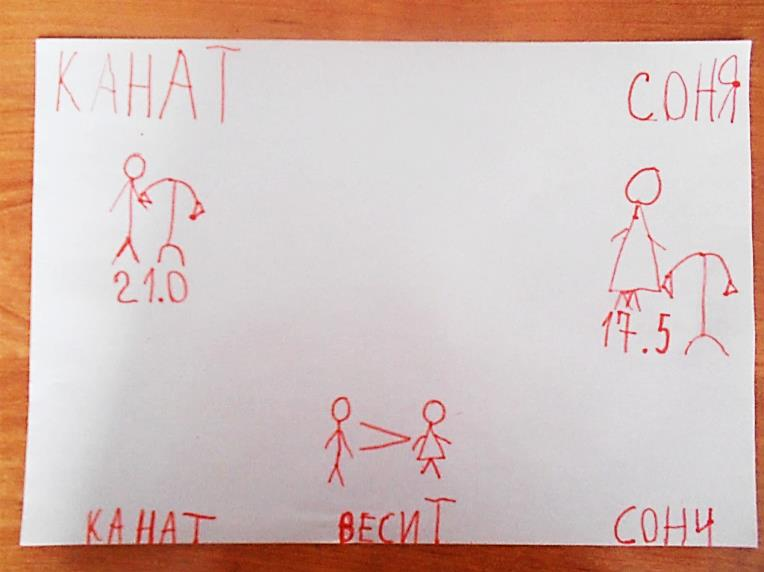 КАНАТ СОНЯ
21.0
17.5
КАНАТ ВЕСИТ СОНИ